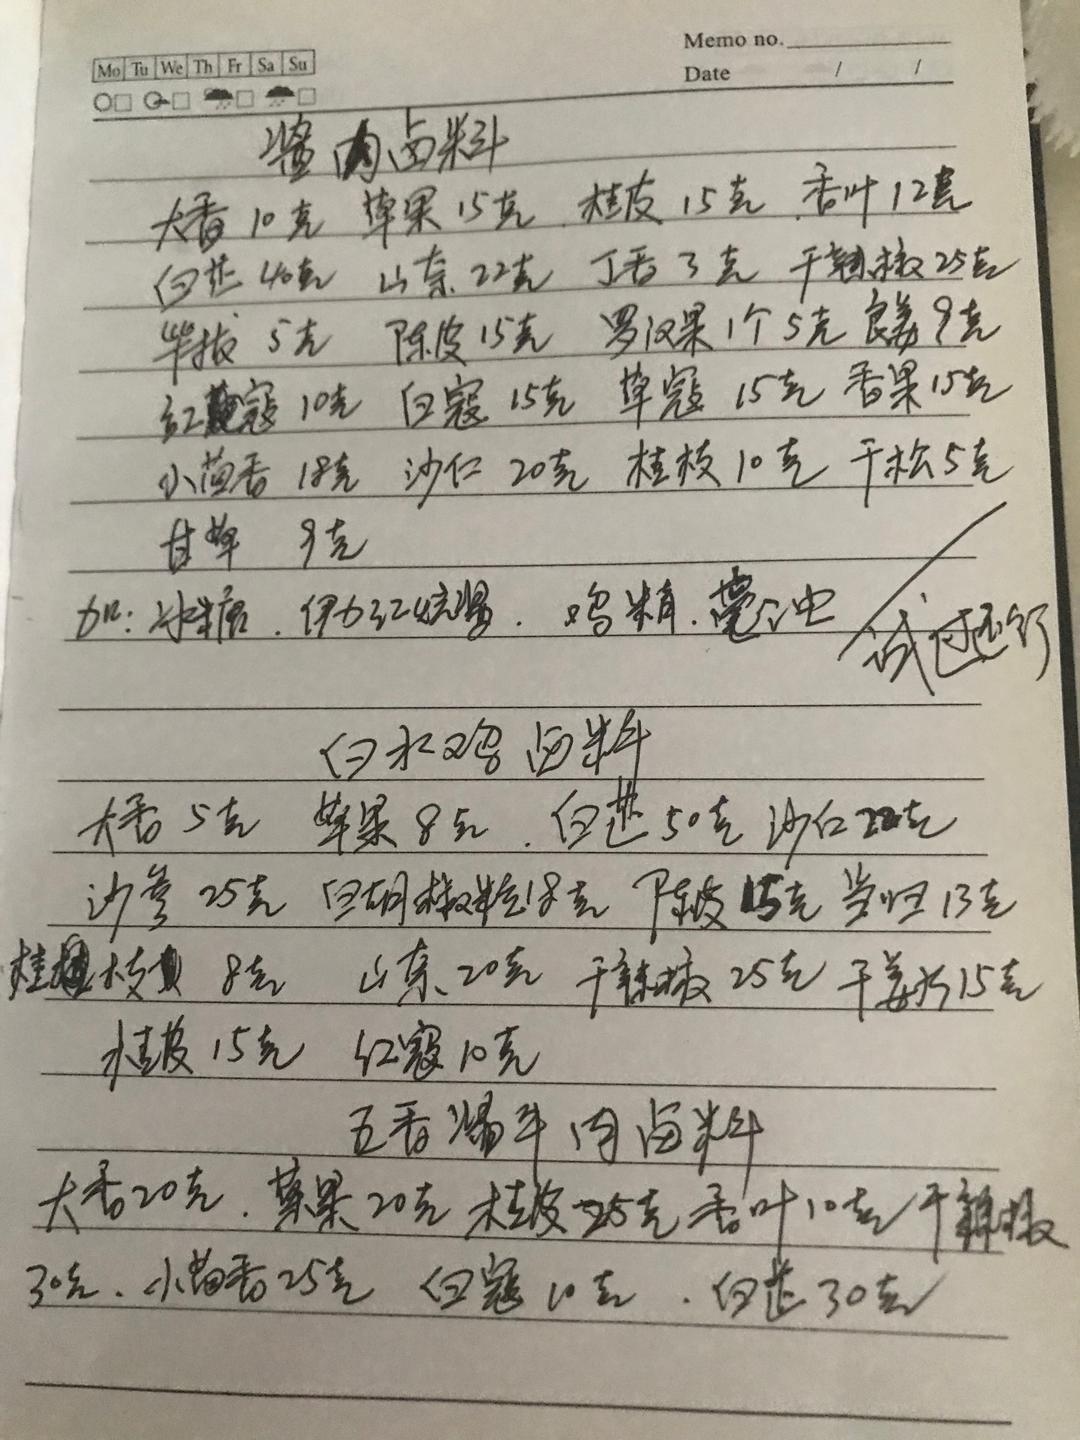 Memo no.
Mo Tu We Th Fr Sa Su
Date / /
酱肉卤料
大香10克 草果15克.桂皮15克.香叶12克
白芷40克 山奈22克 丁香3克 干辣椒25克
毕拔5克 陈皮15克 罗汉果1个5克 良姜9克
红寇10克 白寇15克 草寇15克 香果15克
小茴香18克 沙仁20克 桂枝10克 干松5克
甘草 9克
加:冰糖.伊力红烧酱.鸡精.
试过还行
白水鸡卤料
大香5克 草果8克.白芷50克 沙仁22克
沙参25克 白胡椒粒18克 陈皮15克 当归13克
桂枝 8克 山奈20克 干辣椒25克 干姜片15克
桂皮15克 红寇10克
五香酱牛肉卤料
大香20克.草果20克 桂皮25克 香叶10克 干辣椒
30克.小茴香25克 白寇10克.白芷30克